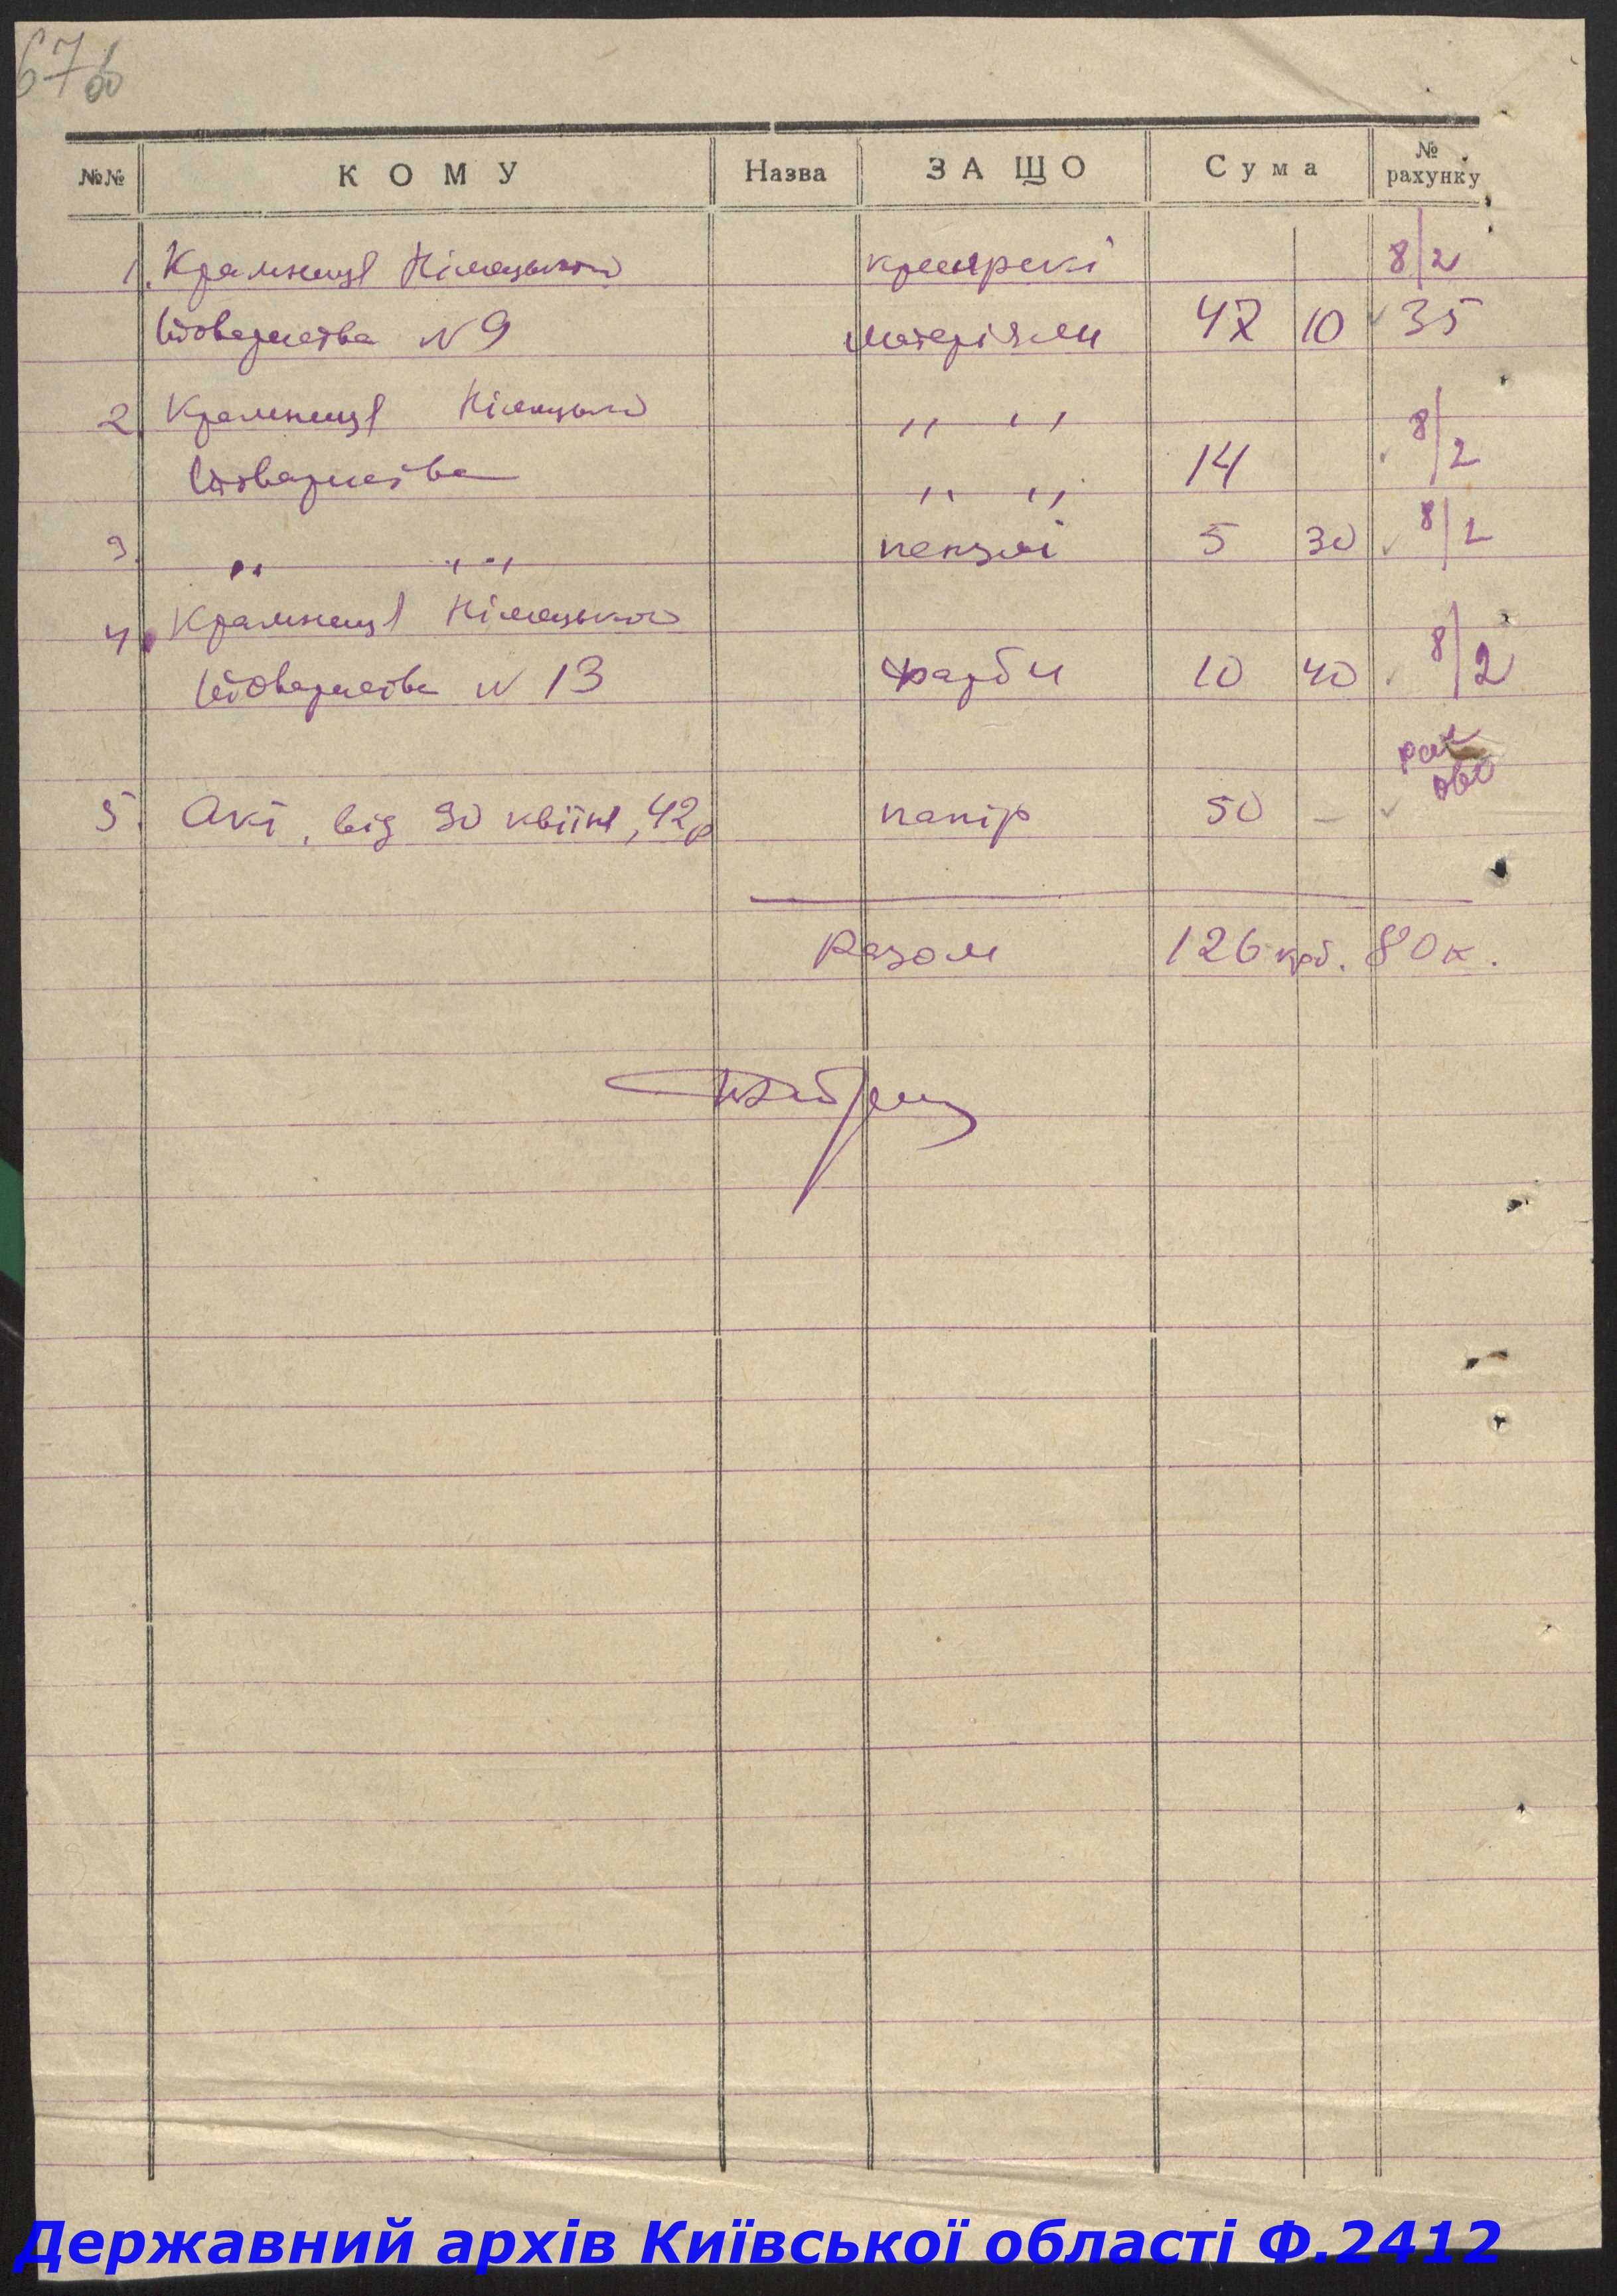 67 зв
№№ КОМУ Назва ЗА ЩО Сума № рахунку
1. Крамниця Німецького 8/2
товариства N 9 матеріяли 47 10 35
2. Крамниця Німецького " " 8/2
товариства " " 14
3. " " пензлі 5 30 8/2
4. Крамниця Німецького
товариства N 13 фарби 10 40 8/2
5. Акт, від 30 квітня, 42 р папір 50 –
Разом 126 крб. 80 к.
Державний архів Київської області Ф.2412